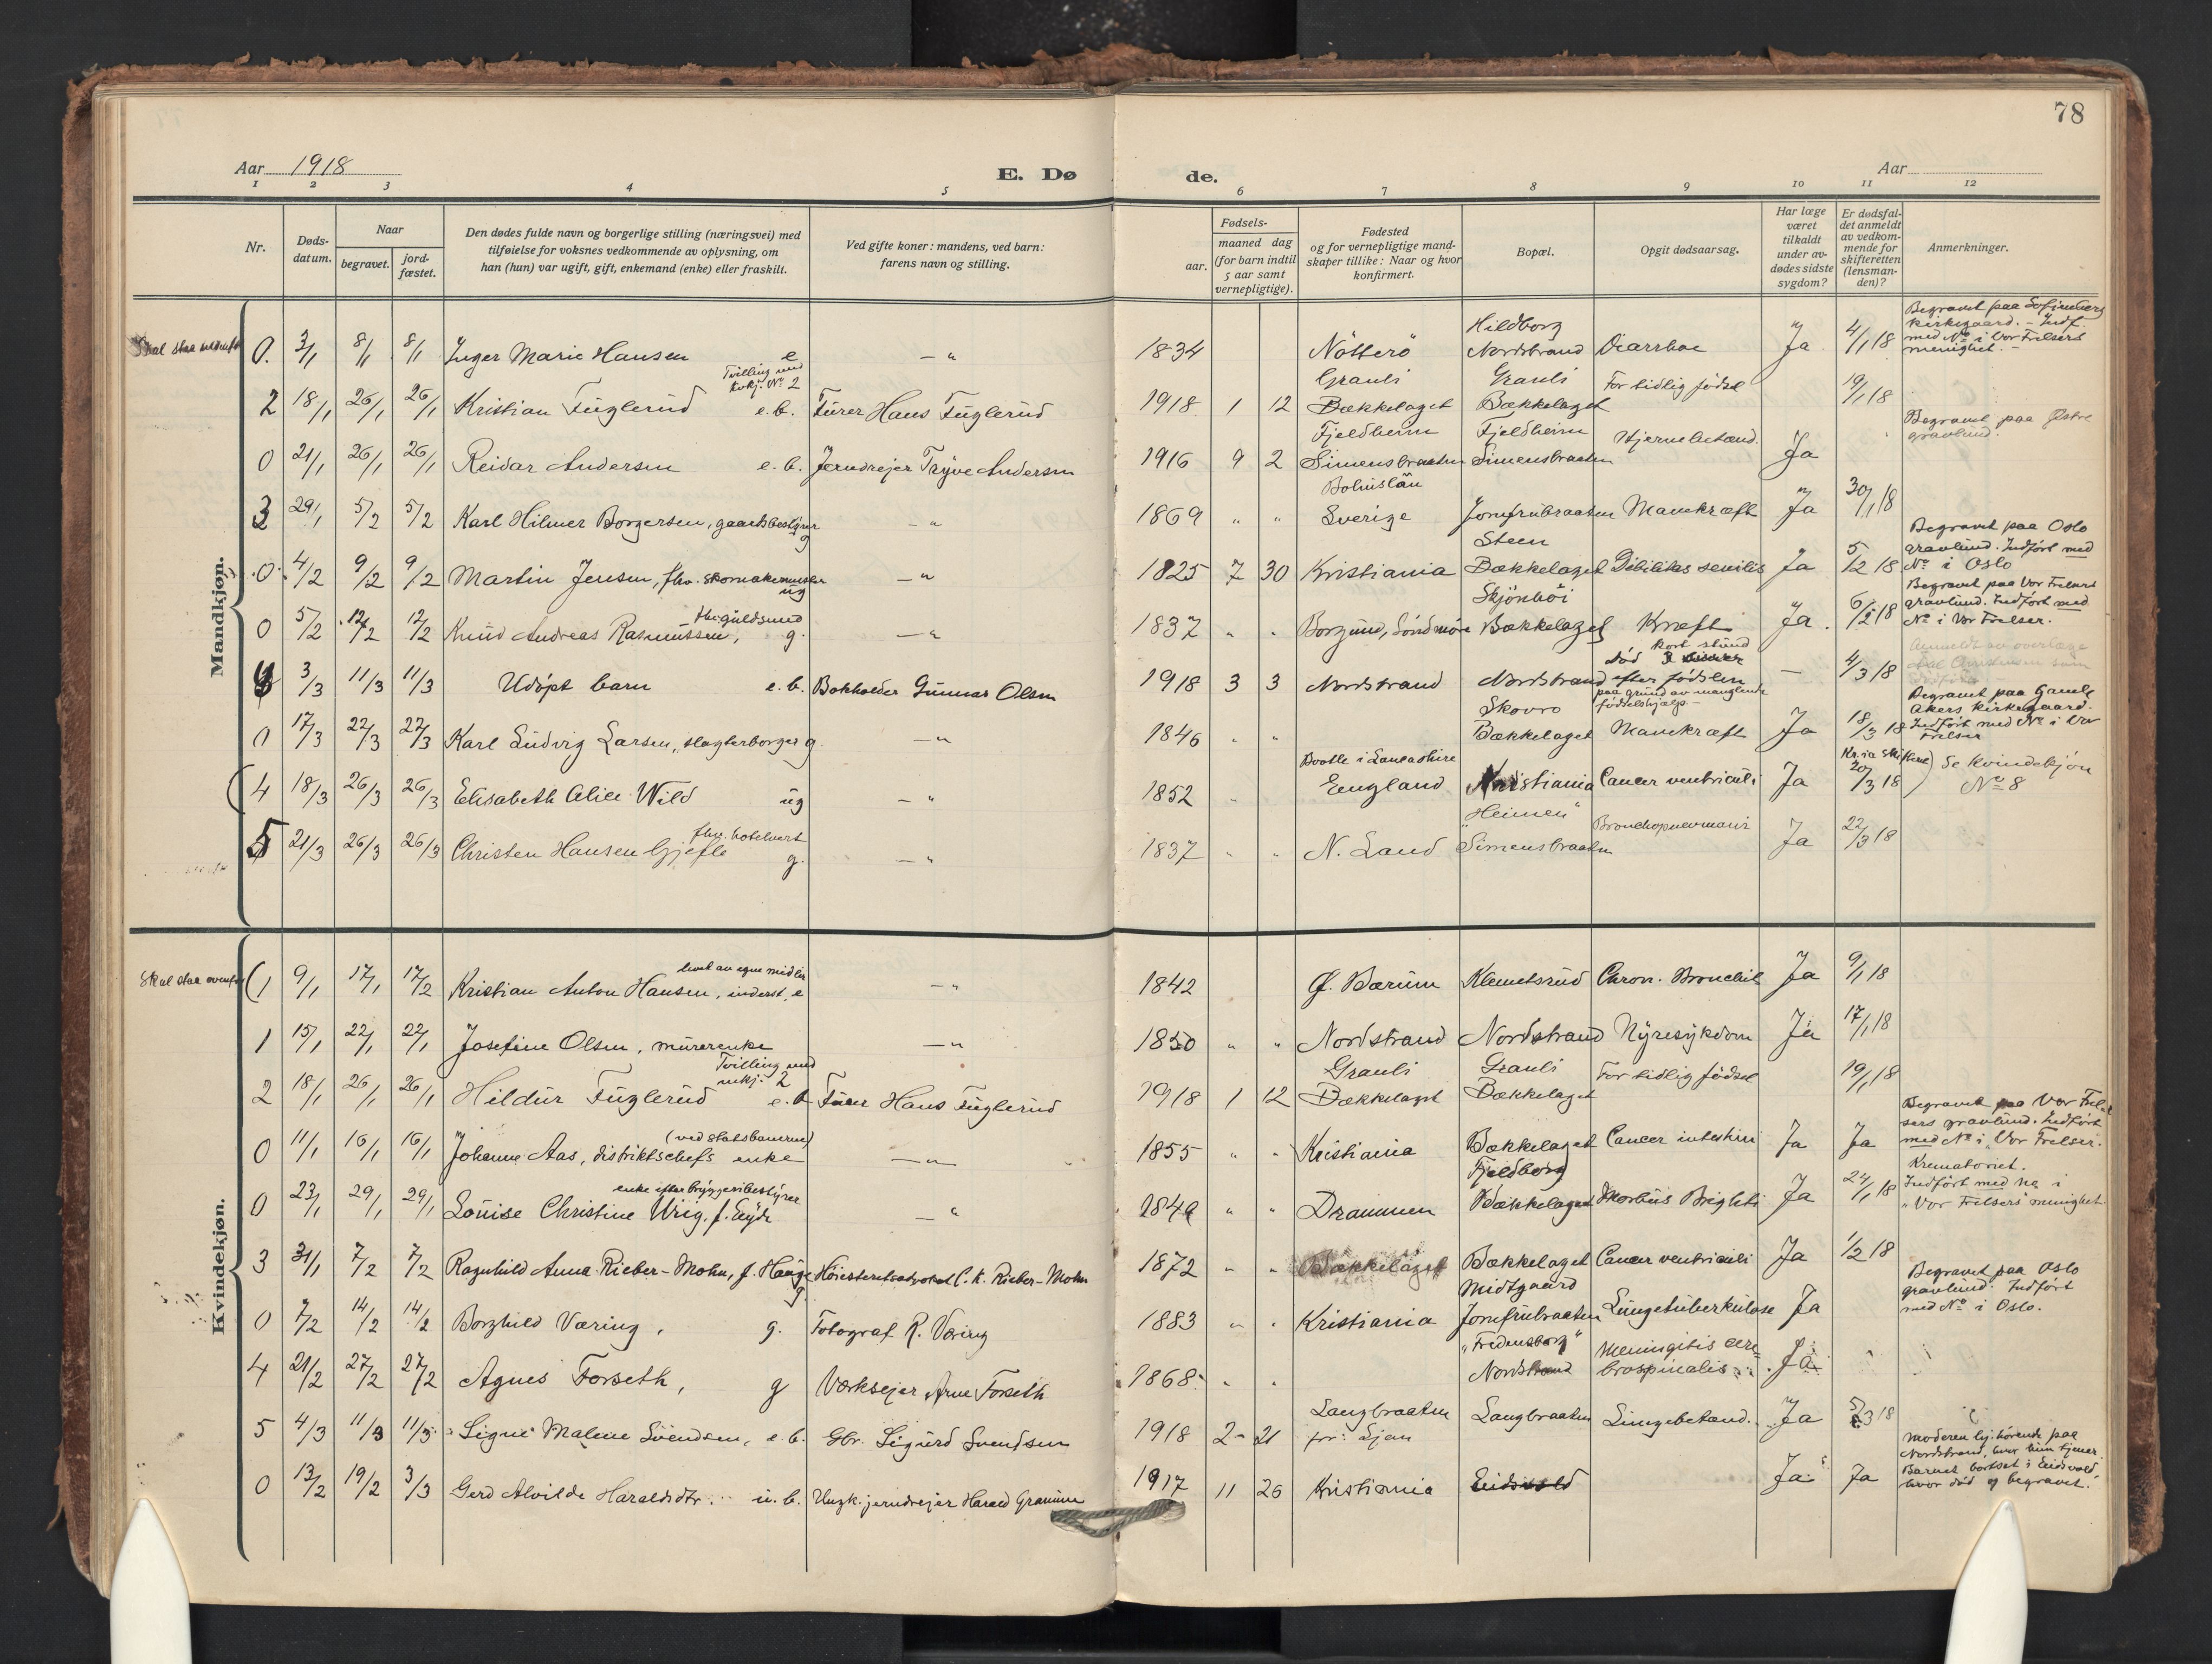 78
Aar 1918
E. Dø
de.
Aar
1 2 3 4 5 6 7 8 9 10 11 12
Nr.
Døds-
datum.
Naar
begravet.
jord-
fæstet.
Den dødes fulde navn og borgerlige stilling (næringsvei) med
tilføielse for voksnes vedkommende av oplysning, om
han (hun) var ugift, gift, enkemand (enke) eller fraskilt.
Ved gifte koner: mandens, ved barn:
farens navn og stilling.
Fødsels-
aar.
maaned dag
(for barn indtil
5 aar samt
vernepligtige).
Fødested
og for vernepligtige mand-
skaper tillike: Naar og hvor
konfirmert.
Bopæl.
Opgit dødsaarsag.
Har læge
været
tilkaldt
under av-
dødes sidste
sygdom?
Er dødsfal-
det anmeldt
av vedkom-
mende for
skifteretten
(lensman-
den)?
Anmerkninger.
Mandkjøn.
Skal staa nedenfor 0. 3/1 8/1 8/1 Inger Marie Hansen e — " 1834 Nötterö Hildborg Nordstrand Diarrhoe Ja 4/1 18 Begravet paa Sofienberg
kirkegaard. - Indf.
med No i Vor Frelsers
menighet. -
2 18/1 26/1 26/1 Kristian Fuglerud Tvilling med kvkj. No 2 e.b. Furer Hans Fuglerud 1918 1 12 Grauli Bækkelaget Grauli Bækkelaget For tidlig fødsel 19/1 18
0 21/1 26/1 26/1 Reidar Andersen e.b. Jerndreier Trÿve Andersen 1916 9 2 Fjeldheim Simensbraaten Fjeldheim Simensbraaten Hjernebetænd. Ja Begravet paa Østre
gravlund.
3 29/1 5/2 5/2 Karl Hilmer Borgersen, gaardsbestyrer g — " 1869 " " Bohuslän Sverige Jomfrubraaten Mavekræft Ja 30/1 18
0 4/2 9/2 9/2 Martin Jensen, fhv. skomakermester ug — " 1825 7 30 Kristiania Steen Bækkelaget Debilitas senilis Ja 5/2 18 Begravet paa Oslo
gravlund. Indført med
No i Oslo
0 5/2 12/2 12/2 Knud Andreas Rasmussen, fhv. guldsmed g. — " 1837 " " Borgund, Søndmøre Skjönhöi Bækkelaget Kræft Ja 6/2 18 Begravet paa Vor Frelsers
gravlund. Indført med
No i Vor Frelser.
4 3/3 11/3 11/3 Udöpt barn e.b. Bokholder Gunnar Olsen 1918 3 3 Nordstrand Nordstrand død kort stund efter fødslen
paa grund av manglende
fødselshjælp. - — 4/3 18
0 17/3 22/3 22/3 Karl Ludvig Larsen, slagterborger g — " 1846 " " Skovro Bækkelaget Mavekræft Ja 18/3 18 Begravet paa Gamle
Akers kirkegaard.
Indført med No i Vor
Frelser
(4 18/3 26/3 26/3 Elisabeth Alice Wild ug — " 1852 " Bootle i Lancashire England Kristiania Cancer ventriculi Ja 20/3 18 ) Se kvindekjøn
No 8
5 21/3 26/3 26/3 Christen Hansen Gjefle fhv. hotelvert g. — " 1837 " " N. Land "Heimen" Simensbraaten Bronchopneumoni Ja 22/3 18
Kvindekjøn.
Skal staa ovenfor (1 9/1 17/1 17/2 Kristian Anton Hansen, inderst, e levet av egne midler — " 1842 Ø. Bærum Klemetsrud Chron. Bronchit Ja 9/1 18
1 15/1 22/1 22/1 Josefine Olsen, murerenke — " 1850 " " Nordstrand Nordstrand Nyresykdom Ja 17/1 18
2 18/1 26/1 26/1 Hildur Fuglerud Tvilling med mkj. 2 e.b. Furer Hans Fuglerud 1918 1 12 Grauli Bækkelaget Grauli Bækkelaget For tidlig fødsel 19/1 18
0 11/1 16/1 16/1 Johanne Aas, distriktschefs enke (ved statsbanerne) — " 1855 " " Kristiania Bækkelaget Cancer intestini Ja Ja Begravet paa Vor Frel-
sers gravlund. Indført
med No i Vor Frelser.
0 23/1 29/1 29/1 Louise Christine Urig, f. Eyde enke efter bryggeribestyrer — " 1849 " " Drammen Fjeldborg Bækkelaget Morbus Brighti Ja 24/1 18 Krematoriet.
Indført med no i
"Vor Frelsers" menighet.
3 31/1 7/2 7/2 Ragnhild Anna Rieber-Mohn, f. Hauge g Høiesteretsadvokat C. K. Rieber-Mohn 1872 " " Bækkelaget Bækkelaget Cancer ventriculi Ja 1/2 18
0 7/2 14/2 14/2 Borghild Væring, g. Fotograf R. Væring 1883 " " Kristiania Midtgaard Jomfrubraaten Lungetuberkulose Ja Begravet paa Oslo
gravlund. Indført
med No i Oslo.
4 21/2 27/2 27/2 Agnes Forseth, g Værkseier Arne Forseth 1868 " " "Fredensborg" Nordstrand Meningitis cere-
brospinalis Ja
5 4/3 11/3 11/3 Signe Malene Svendsen, e.b. Gbr. Sigurd Svendsen 1918 2 21 Langbraaten pr. Ljan Langbraaten Lungebetænd. Ja 5/3 18
0 13/2 19/2 3/3 Gerd Alvilde Haraldsdtr. u.b. Ungk. jerndreier Harald Gramme 1917 11 26 Kristiania Eidsvold Ja Ja Moderen hj.hørende paa
Nordstrand, hvor hun tjener.
Barnet bortsat i Eidsvold,
hvor død og begravet.